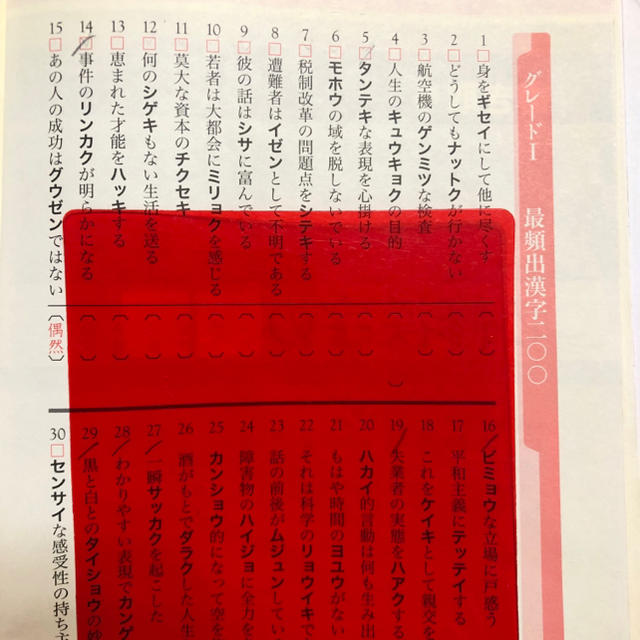 グレードⅠ 最頻出漢字二〇〇
1 □ 身をギセイにして他に尽くす
2 □ どうしてもナットクが行かない
3 □ 航空機のゲンミツな検査
4 □ 人生のキュウキョクの目的
5 □ タンテキな表現を心掛ける
6 □ モホウの域を脱しないでいる
7 □ 税制改革の問題点をシテキする
8 □ 遭難者はイゼンとして不明である
9 □ 彼の話はシサに富んでいる
10 □ 若者は大都会にミリョクを感じる
11 □ 莫大な資本のチクセキ
12 □ 何のシゲキもない生活を送る
13 □ 恵まれた才能をハッキする
14 □ 事件のリンカクが明らかになる
15 □ あの人の成功はグウゼンではない 〔偶然〕
16 ビミョウな立場に戸惑う
17 平和主義にテッテイする
18 これをケイキとして親交を
19 失業者の実態をハアクする
20 ハカイ的言動は何も生み出
21 もはや時間のヨユウがない
22 それは科学のリョウイキで
23 話の前後がムジュンしてい
24 障害物のハイジョに全力を
25 カンショウ的になって空を
26 酒がもとでダラクした人生
27 一瞬サッカクを起こした
28 わかりやすい表現でカンゲ
29 黒と白とのタイショウの妙
30 □ センサイな感受性の持ち主